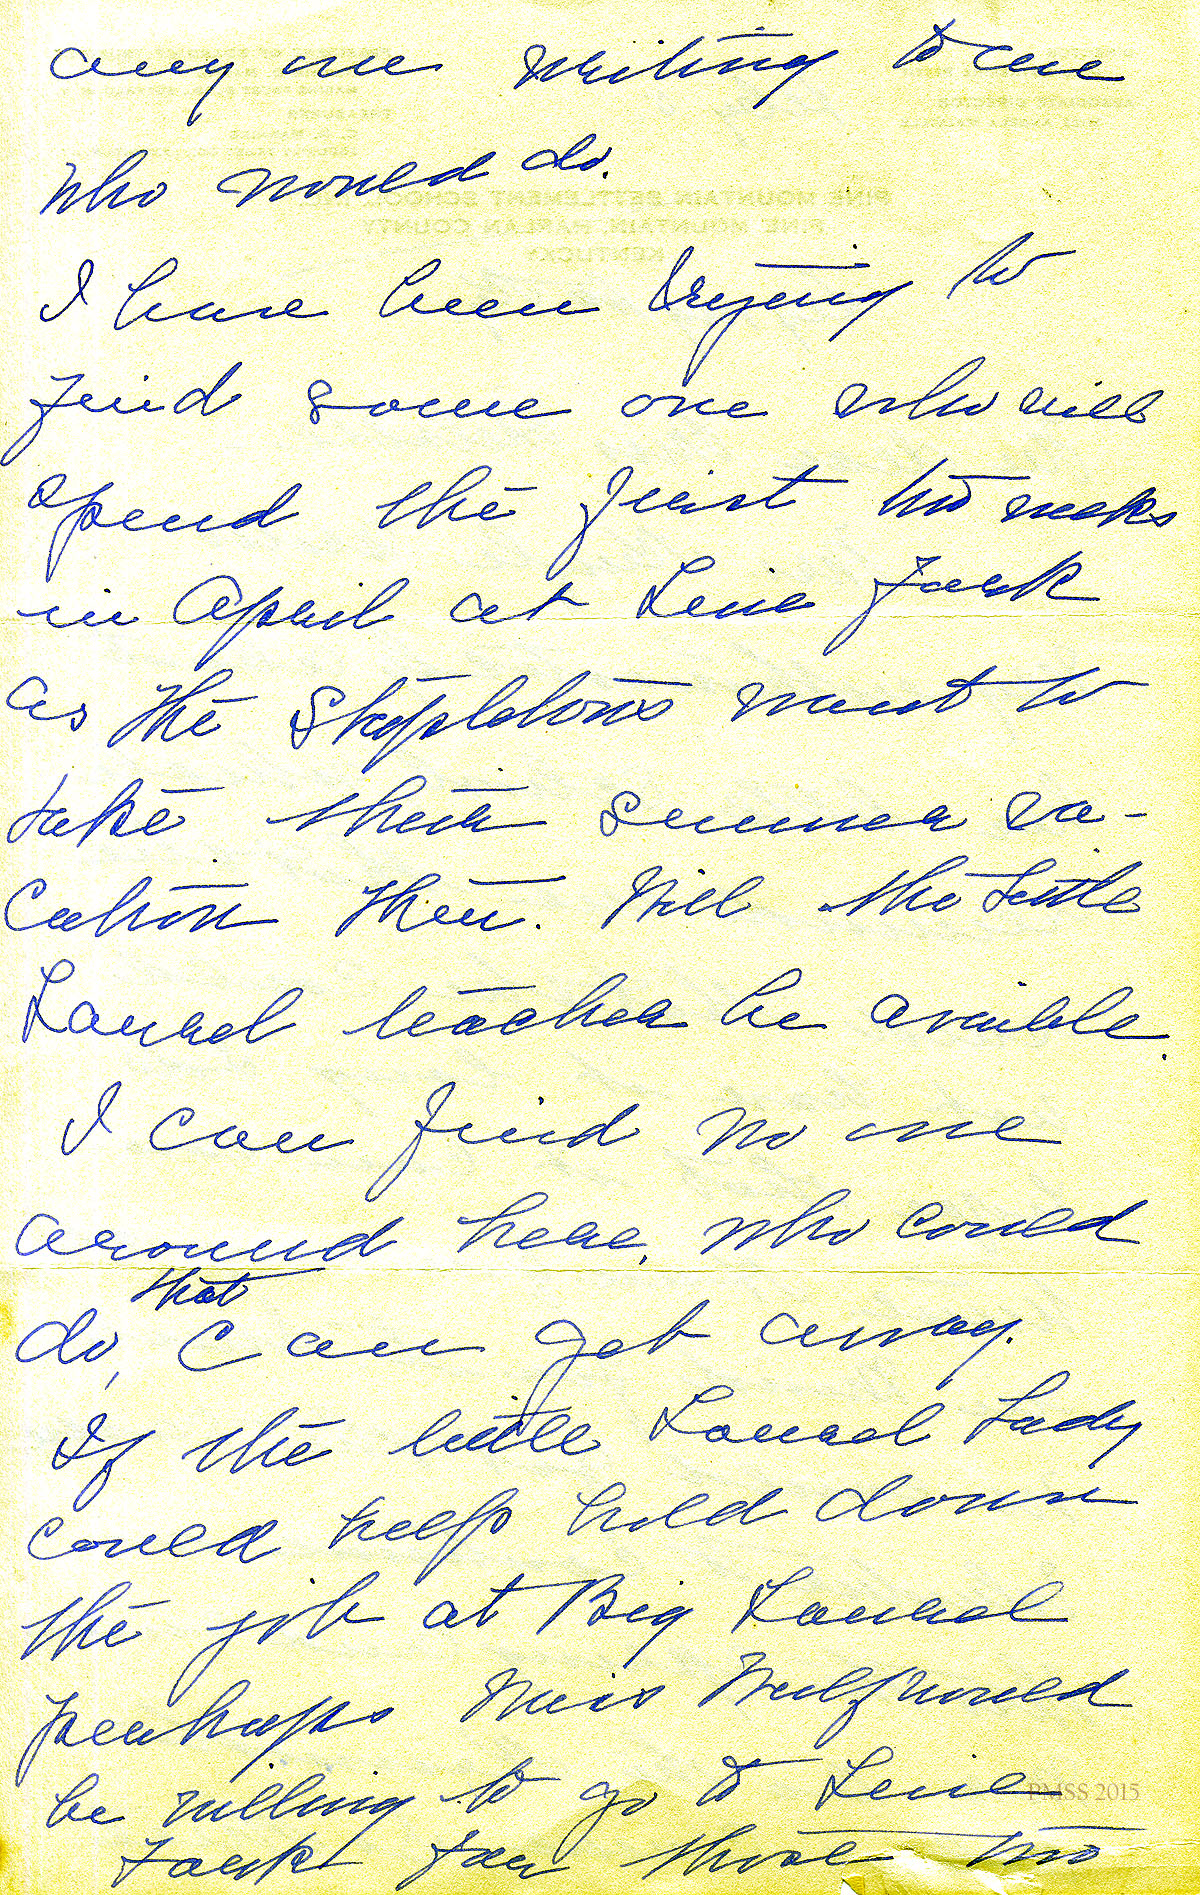 any one writing to me
who would do.
I have been trying to
find some one who will
spend the first two weeks
in April at Line Fork
as the Stapletons want to
take their summer va-
cation then. Will the Little
Laurel teacher be avaible.
I can find no one
around here, who could
that
do, C an get away.
If the little Laurel Lady
could help hold down
the job at Big Laurel
perhaps Miss would
be willing to go to Line
Fork for those two
PINE MOUNTAIN SETTLEMENT SCHOOL
PINE MOUNTAIN, HARLAN COUNTY
KENTUCKY
PMSS 2015